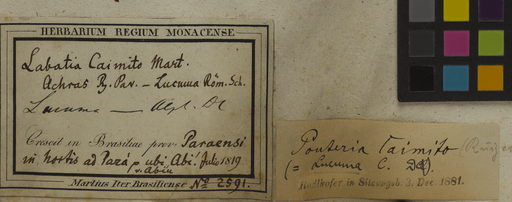 HERBARIUM REGIUM MONACENSE
Labatia Caimito Mart.
Achras Rz. Pav. – Lucuma Röm. Sch.
Lucuma — Alph. DC
Crescit in Brasiliae prov. Paraensi
in hortis ad Pará ubi Abi. Julio 1819
v. Abiu
Martius Iter Brasiliense No 2591.
Pouteria Caimito
(= Lucuma C. DC).
Radlkofer in Sitzungsb. 3. Dec. 1881.